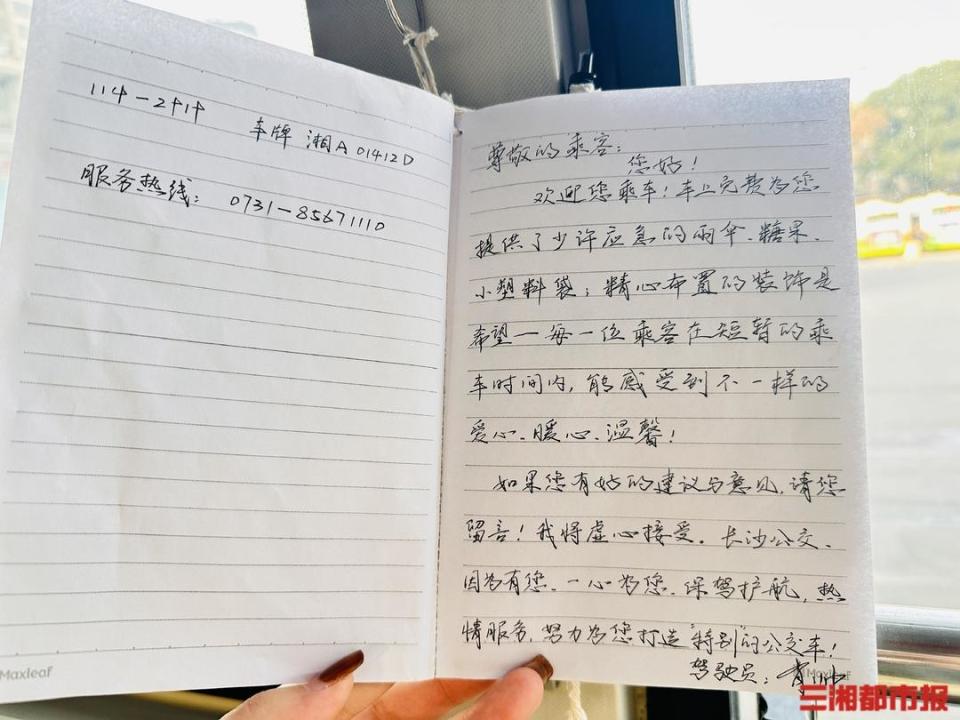 114-2414
车牌 湘A 01412D
服务热线: 0731-85671110
Maxleaf
尊敬的乘客:
您好!
欢迎您乘车!车上免费为您
提供了少许应急的雨伞、糖果、
小塑料袋;精心布置的装饰是
希望一每一位乘客在短暂的乘
车时间内,能感受到不一样的
爱心、暖心、温馨!
如果您有好的建议与意见,请您
留言!我将虚心接受。长沙公交、
因为有您、一心为您、保驾护航,热
情服务,努力为您打造"特别"的公交车!
驾驶员:
Maxleaf
三湘都市报